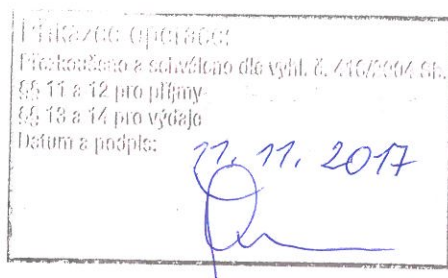 Příkazce operace:
Přezkoušeno a schváleno dle vyhl. č. 416/2004 Sb.
§§ 11 a 12 pro příjmy
§§ 13 a 14 pro výdaje
Datum a podpis: 11. 11. 2017